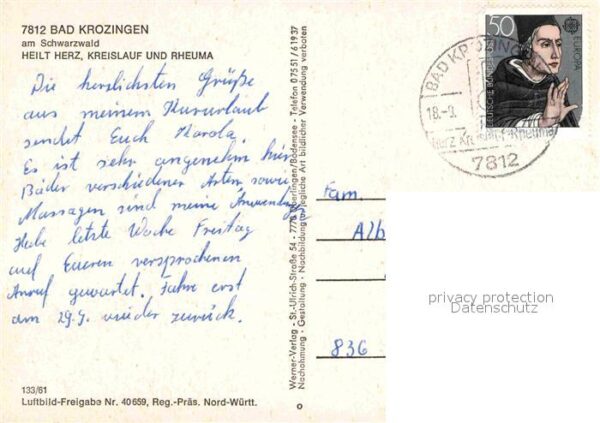 7812 BAD KROZINGEN
am Schwarzwald
HEILT HERZ, KREISLAUF UND RHEUMA
Die herzlichsten Grüße
aus meinem Kururlaub
sendet Euch Karola.
Es ist sehr angenehm hier
Bäder verschiedener Arten sowie
Massagen sind meine Anwendung
Habe letzte Woche Freitag
auf Eueren versprochenen
Anruf gewartet. Fahre erst
am 29.9. wieder zurück.
133/61
Luftbild-Freigabe Nr. 40659, Reg.-Präs. Nord-Württ.
Werner-Verlag - St.-Ulrich-Straße 54 - 7770 Überlingen/Bodensee - Telefon 07551/61937
Nachahmung - Gestaltung - Nachbildung - jegliche Art bildlicher Verwendung verboten
50
EUROPA
DEUTSCHE
BAD KROZINGEN
18.-9.
Herz Kreislauf Rheuma
7812
Fam.
Alb
836
privacy protection
Datenschutz